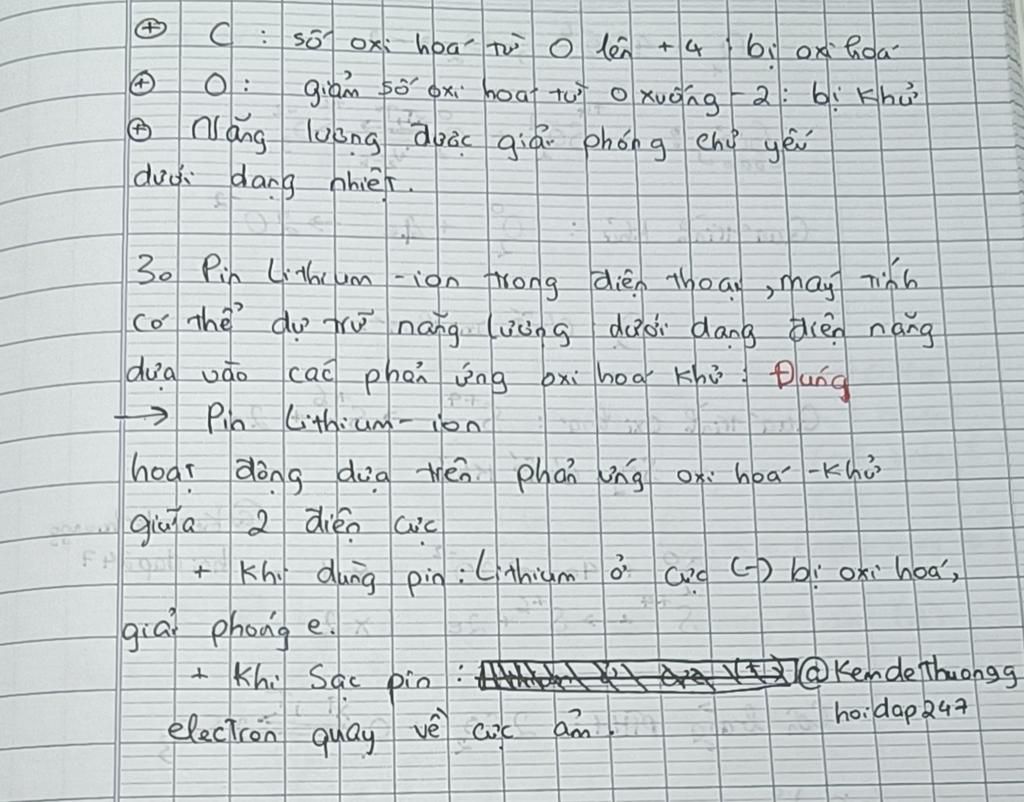 ⊕ C : số oxi hoá từ 0 lên +4 : bị oxi hoá
⊕ O : giảm số oxi hoá từ 0 xuống -2 : bị khử
⊕ Năng lượng được giải phóng chủ yếu
dưới dạng nhiệt.
3. Pin Lithium-ion trong điện thoại, máy tính
có thể dự trữ năng lượng dưới dạng điện năng
dựa vào các phản ứng oxi hoá khử : Đúng
→ Pin Lithium-ion
hoạt động dựa trên phản ứng oxi hoá-khử
giữa 2 điện cực
+ Khi dùng pin : Lithium ở cực (-) bị oxi hoá,
giải phóng e.
+ Khi sạc pin : @Kemdethuongg
electron quay về cực âm. hoidap247